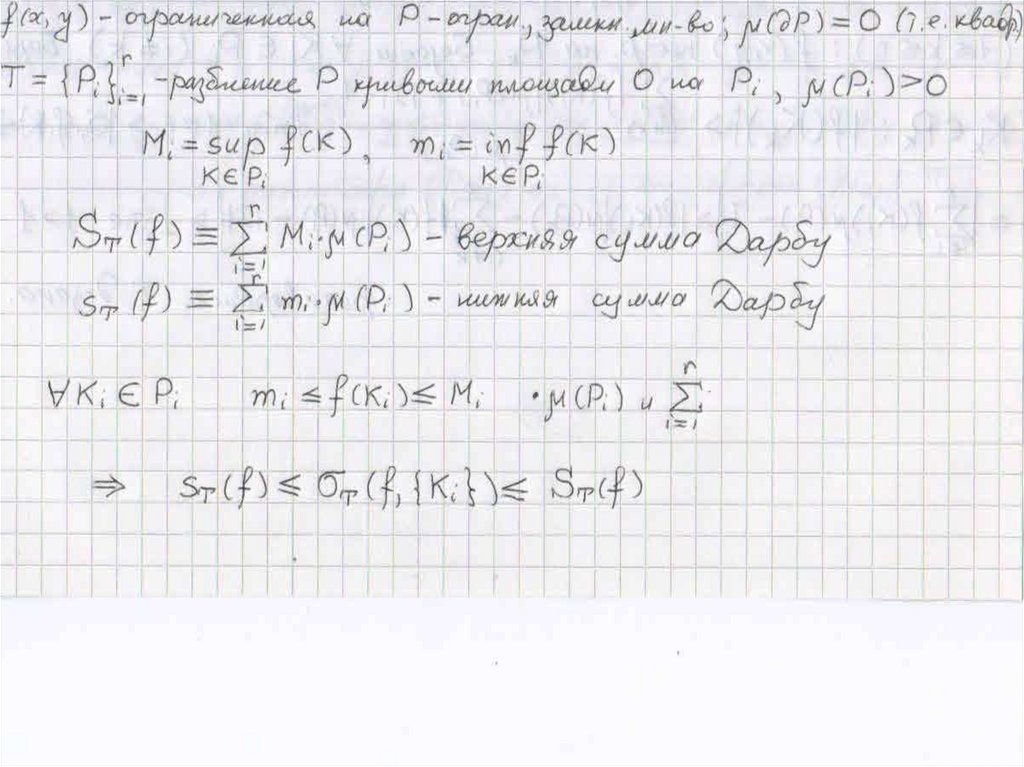 f(x,y) - ограниченная на P - огран., замкн. мн-во; μ(∂P) = 0 (т.е. квадр)
T = {P_i}_{i=1}^r - разбиение P кривыми площади 0 на P_i, μ(P_i) > 0
M_i = sup_{K∈P_i} f(K), m_i = inf_{K∈P_i} f(K)
S_T(f) ≡ ∑_{i=1}^r M_i·μ(P_i) - верхняя сумма Дарбу
s_T(f) ≡ ∑_{i=1}^r m_i·μ(P_i) - нижняя сумма Дарбу
∀K_i ∈ P_i m_i ≤ f(K_i) ≤ M_i ·μ(P_i) и ∑_{i=1}^r
⇒ s_T(f) ≤ σ_T(f,{K_i}) ≤ S_T(f)